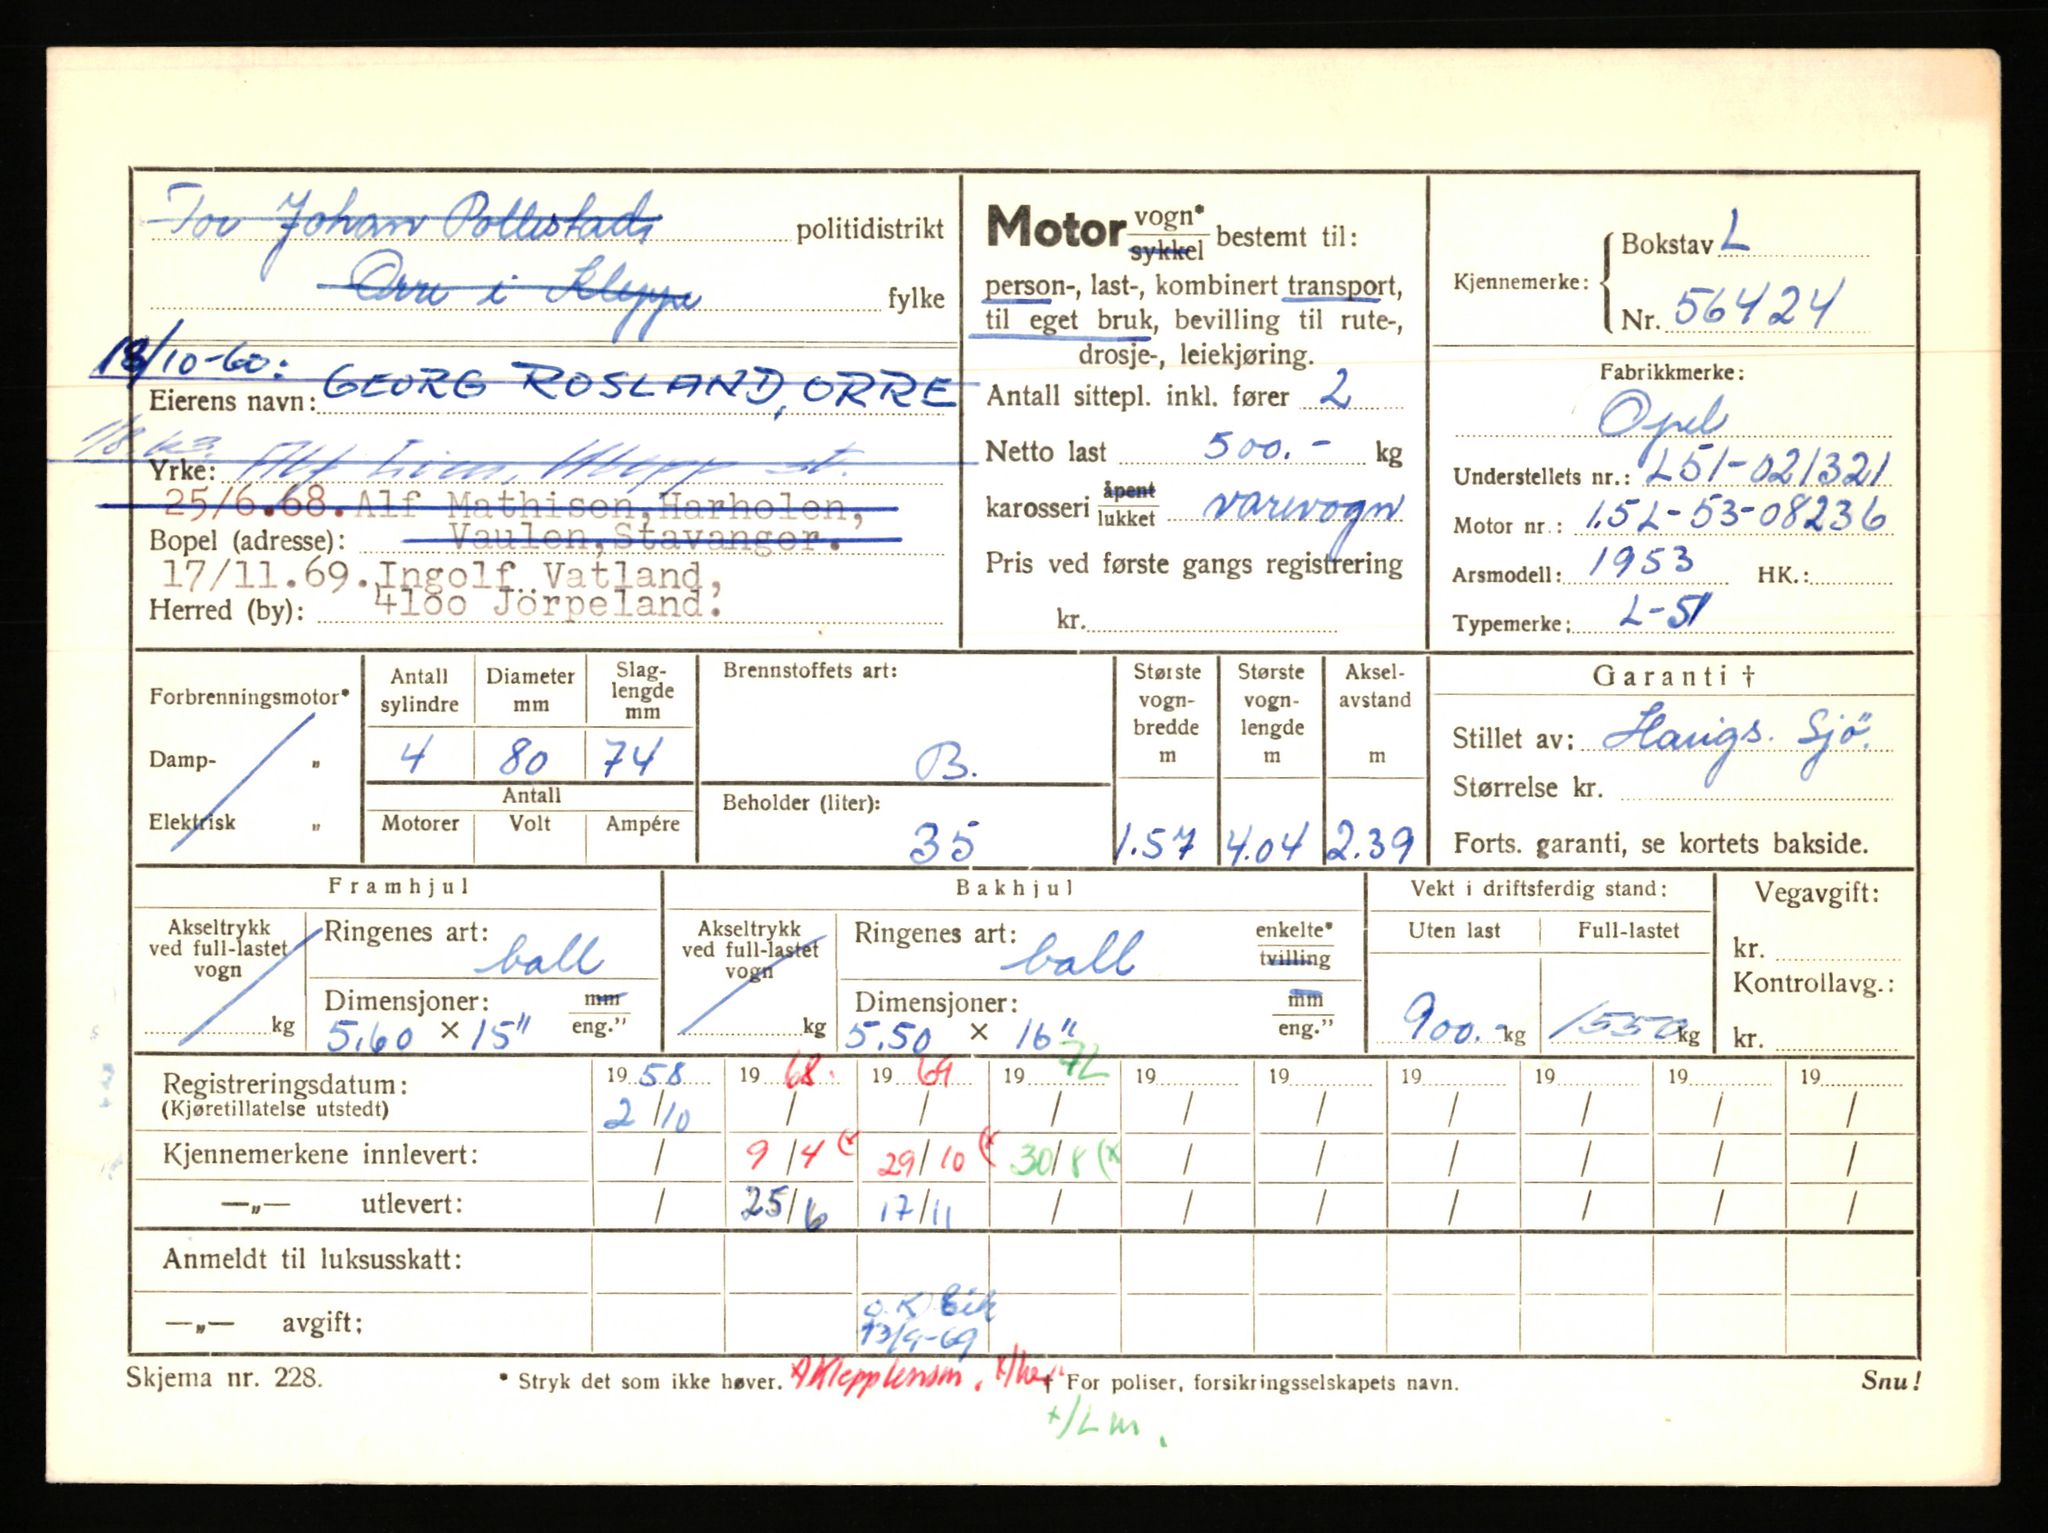 Tor Johan Pollestad, politidistrikt
Orre i Kleppe fylke
18/10-60: GEORG ROSLAND, ORRE
Eierens navn:
1/8 63. Alf Lien, Klepp st.
Yrke:
25/6.68. Alf Mathisen, Harholen,
Bopel (adresse): Vaulen, Stavanger.
17/11.69. Ingolf Vatland,
Herred (by): 4100 Jörpeland.
Motor vogn* sykkel bestemt til:
person-, last-, kombinert transport,
til eget bruk, bevilling til rute-,
drosje-, leiekjøring.
Antall sittepl. inkl. fører 2
Netto last 500.- kg
karosseri åpent lukket varevogn
Pris ved første gangs registrering
kr.
Kjennemerke: Bokstav L
Nr. 56424
Fabrikkmerke:
Opel
Understellets nr.: L51-021321
Motor nr.: 1.5L-53-08236
Arsmodell: 1953 HK.:
Typemerke: L-51
Forbrenningsmotor*
Damp- "
Elektrisk "
Antall sylindre Diameter mm Slaglengde mm
4 80 74
Antall
Motorer Volt Ampére
Brennstoffets art:
B.
Beholder (liter):
35
Største vognbredde m
1.57
Største vognlengde m
4.04
Akselavstand m
2.39
Garanti †
Stillet av: Haugs. Sjö.
Størrelse kr.
Forts. garanti, se kortets bakside.
Framhjul
Akseltrykk ved full-lastet vogn kg
Ringenes art: ball
Dimensjoner: mm eng."
5.60 × 15"
Bakhjul
Akseltrykk ved full-lastet vogn kg
Ringenes art: ball enkelte* tvilling
Dimensjoner: mm eng."
5.50 × 16"
Vekt i driftsferdig stand:
Uten last Full-lastet
900.- kg 1550 kg
Vegavgift:
kr.
Kontrollavg.:
kr.
Registreringsdatum: 1958 1968. 1969 1972 19 19 19 19 19 19
(Kjøretillatelse utstedt) 2/10 / / / / / / / / /
Kjennemerkene innlevert: / 9/4 (x 29/10 (x 30/8 (x / / / / / /
—„— utlevert: / 25/6 17/11 / / / / / / /
Anmeldt til luksusskatt:
—„— avgift;
O.K.
13/9-69
Skjema nr. 228. * Stryk det som ikke høver. x) Klepp lensm. † For poliser, forsikringsselskapets navn. Snu!
x/Lm.